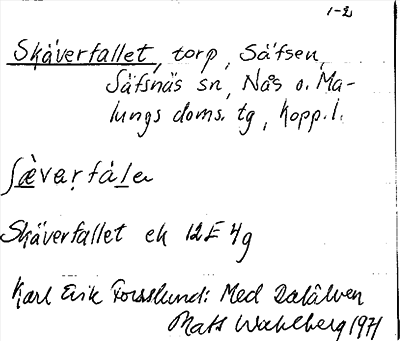 1-2
Skäverfallet, torp, Säfsen,
Säfsnäs sn, Nås o. Ma-
lungs doms. tg, Kopp. l.
ʃæ̀verfàlɛ
Skäverfallet ek 12E 4g
Karl Erik Forsslund: Med Dalälven
Mats Wahlberg 1971